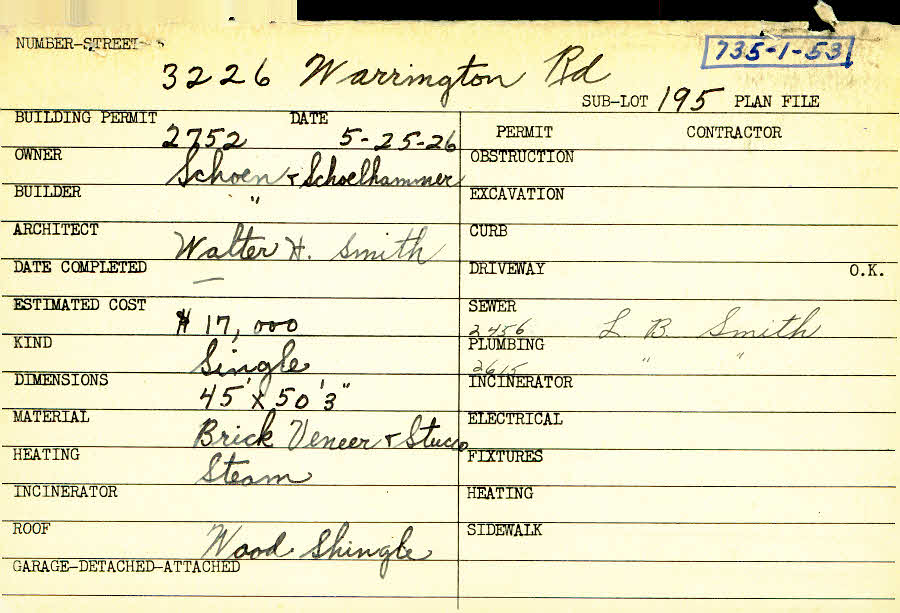 NUMBER-STREET 3226 Warrington Rd 735-1-53
SUB-LOT 195 PLAN FILE
BUILDING PERMIT 2752 DATE 5-25-26
PERMIT CONTRACTOR
OWNER Schoen & Schoelhammer
OBSTRUCTION
BUILDER "
EXCAVATION
ARCHITECT Walter H. Smith
CURB
DATE COMPLETED —
DRIVEWAY O.K.
ESTIMATED COST $17,000
SEWER 2456 L B. Smith
KIND Single
PLUMBING 2615 " "
DIMENSIONS 45' x 50' 3"
INCINERATOR
MATERIAL Brick Veneer & Stucco
ELECTRICAL
HEATING Steam
FIXTURES
INCINERATOR
HEATING
ROOF Wood Shingle
SIDEWALK
GARAGE-DETACHED-ATTACHED